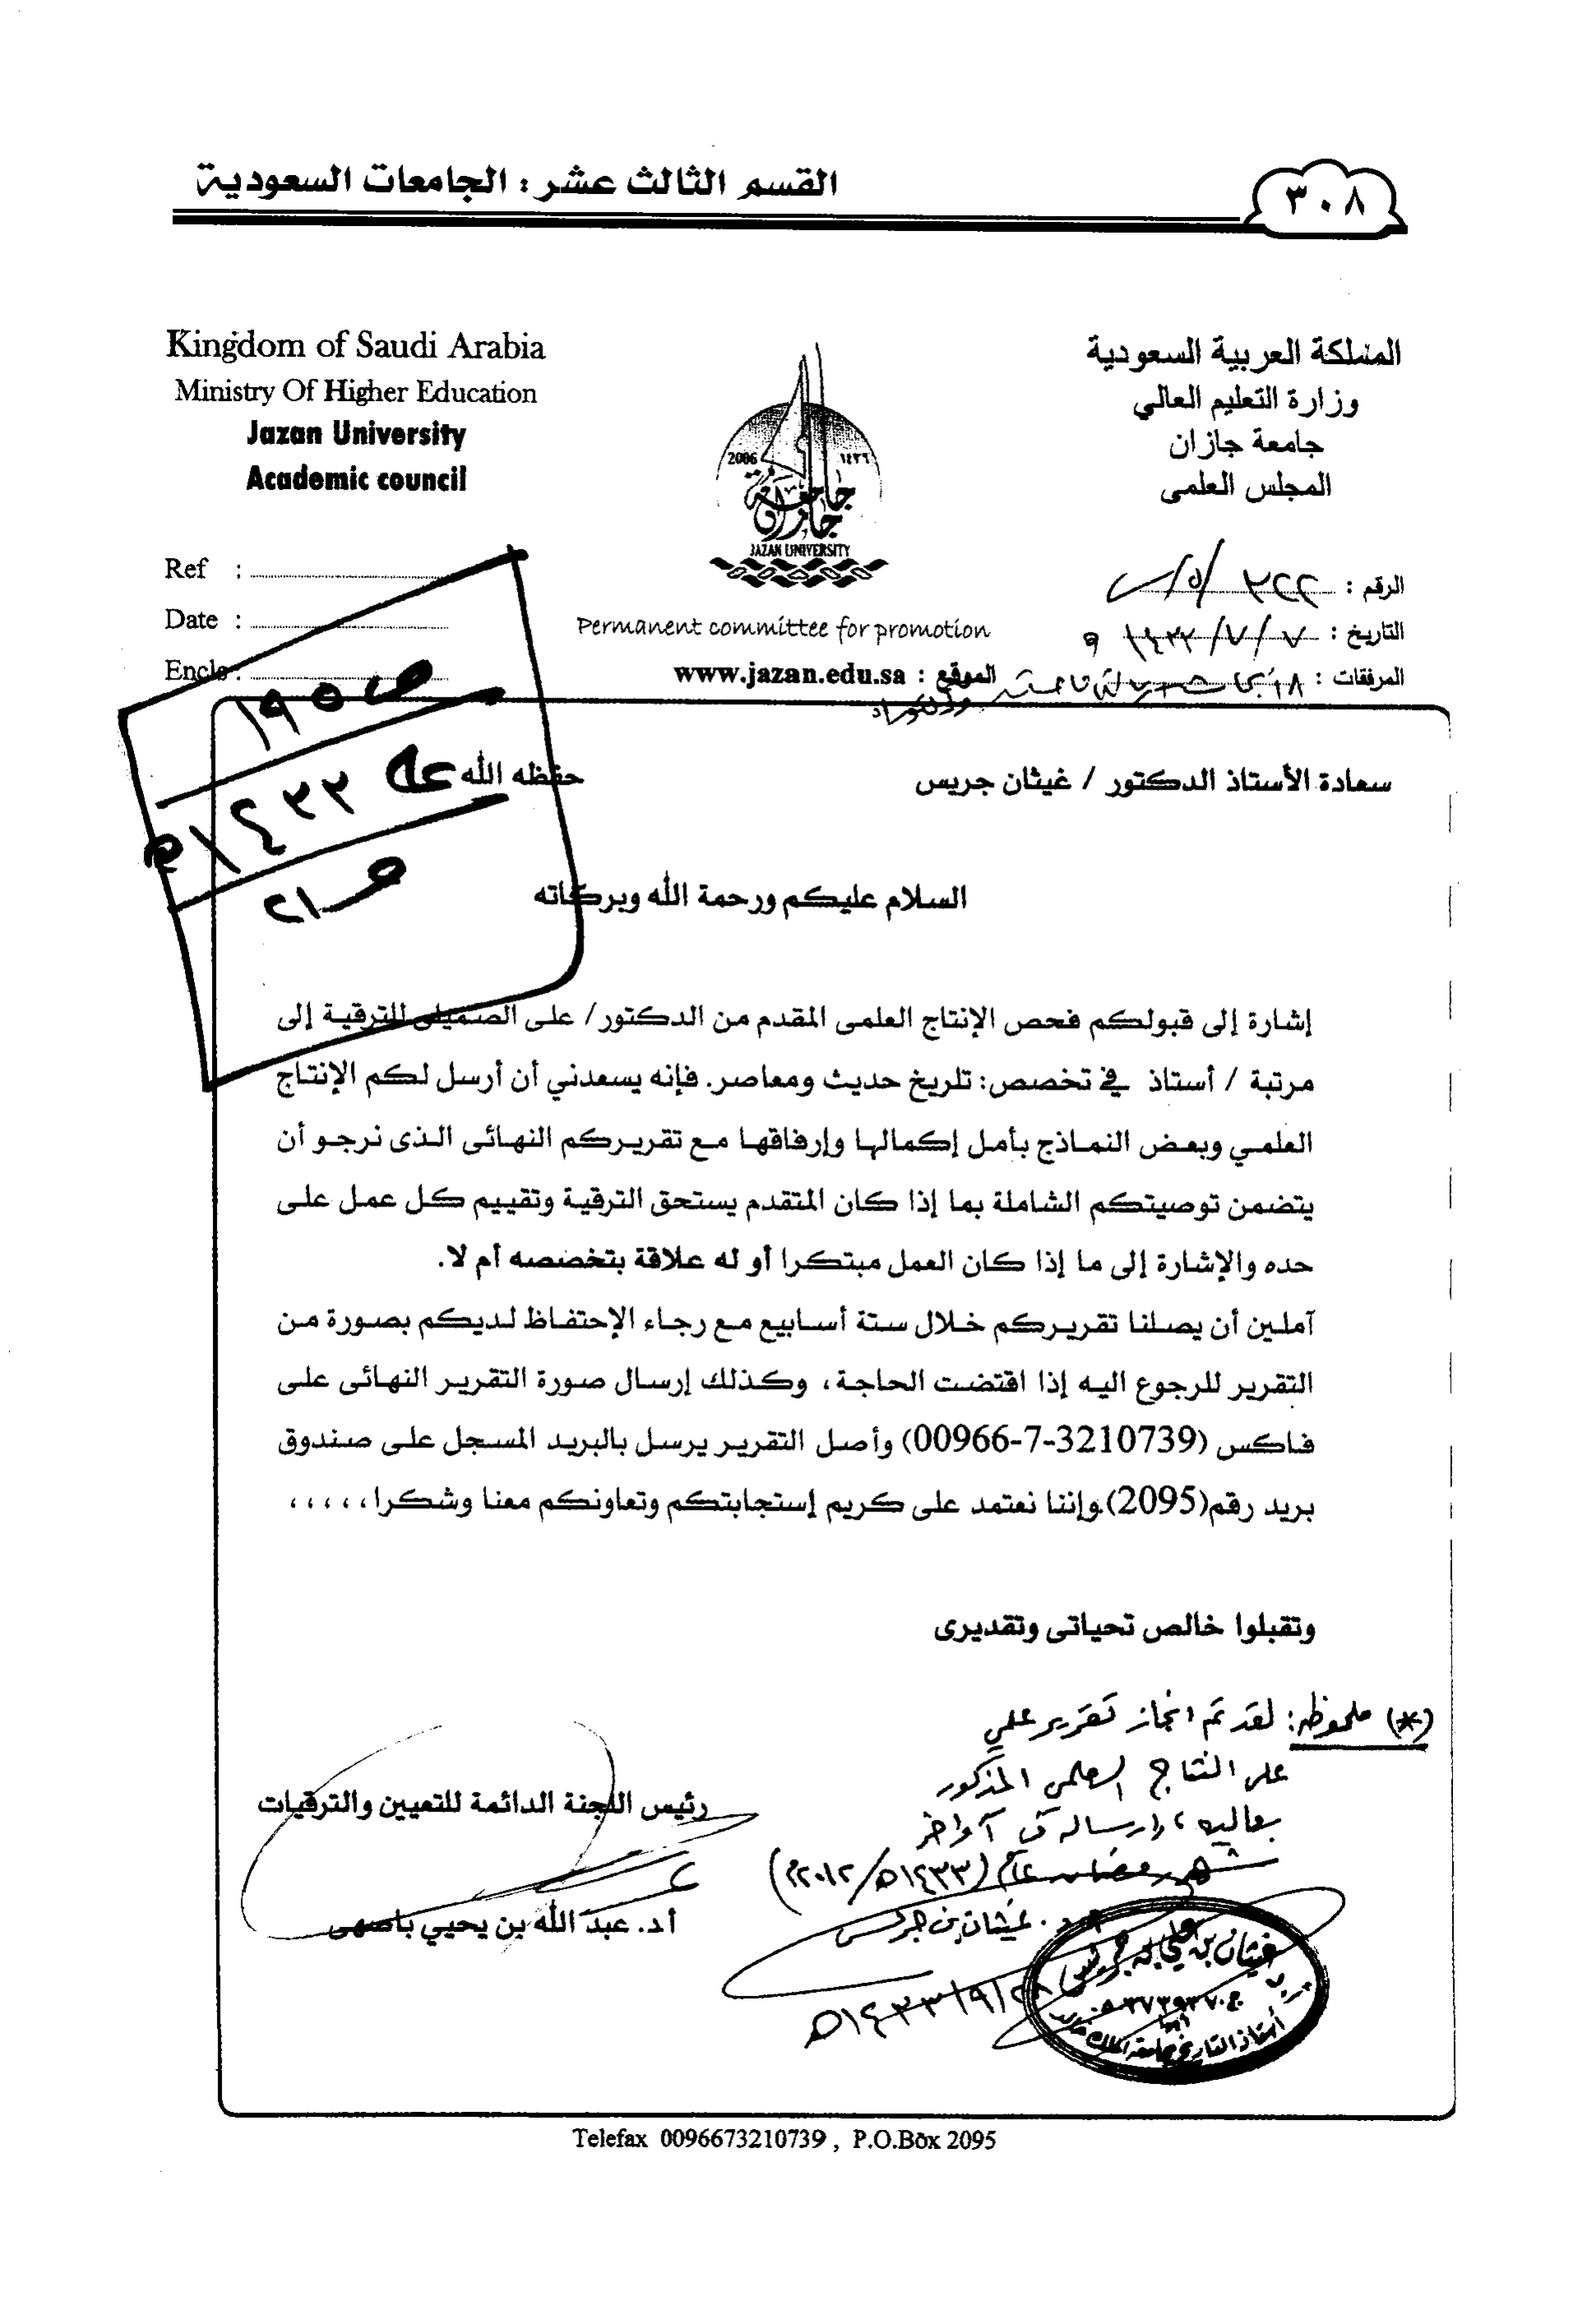 القسم الثالث عشر : الجامعات السعودية
٣٠٨
Kingdom of Saudi Arabia
Ministry Of Higher Education
Jazan University
Academic council
Ref :
Date :
Encls :
2006 ١٤٢٦
جامعة
جازان
JAZAN UNIVERSITY
Permanent committee for promotion
الموقع : www.jazan.edu.sa
المملكة العربية السعودية
وزارة التعليم العالي
جامعة جازان
المجلس العلمى
الرقم : ٣٢٢
التاريخ : ٧/٧/
المرفقات : ٨
١٩٥
١٤٣٣ هـ
سعادة الأستاذ الدكتور / غيثان جريس حفظه الله
السلام عليكم ورحمة الله وبركاته
إشارة إلى قبولكم فحص الإنتاج العلمى المقدم من الدكتور/ على الصميلى للترقية إلى
مرتبة / أستاذ في تخصص: تلريخ حديث ومعاصر. فإنه يسعدني أن أرسل لكم الإنتاج
العلمي وبعض النماذج بأمل إكمالها وإرفاقها مع تقريركم النهائى الذى نرجو أن
يتضمن توصيتكم الشاملة بما إذا كان المتقدم يستحق الترقية وتقييم كل عمل على
حده والإشارة إلى ما إذا كان العمل مبتكرا أو له علاقة بتخصصه أم لا.
آملين أن يصلنا تقريركم خلال ستة أسابيع مع رجاء الإحتفاظ لديكم بصورة من
التقرير للرجوع اليه إذا اقتضت الحاجة، وكذلك إرسال صورة التقرير النهائى على
فاكس (00966-7-3210739) وأصل التقرير يرسل بالبريد المسجل على صندوق
بريد رقم(2095).وإننا نعتمد على كريم إستجابتكم وتعاونكم معنا وشكرا،،،،،
وتقبلوا خالص تحياتى وتقديرى
(*) ملحوظة: لقد تم انجاز تقرير علمي
على النتاج العلمى المذكور
بعاليه، وإرساله في آواخر
شهر رمضان عام (١٤٣٣هـ/٢٠١٢م)
أ.د. غيثان بن جريس
٢٨/٩/١٤٣٣هـ
رئيس اللجنة الدائمة للتعيين والترقيات
أد. عبد الله بن يحيي باصهى
غيثان بن علي بن جريس
أستاذ التاريخ بجامعة الملك خالد
Telefax 0096673210739 , P.O.Box 2095